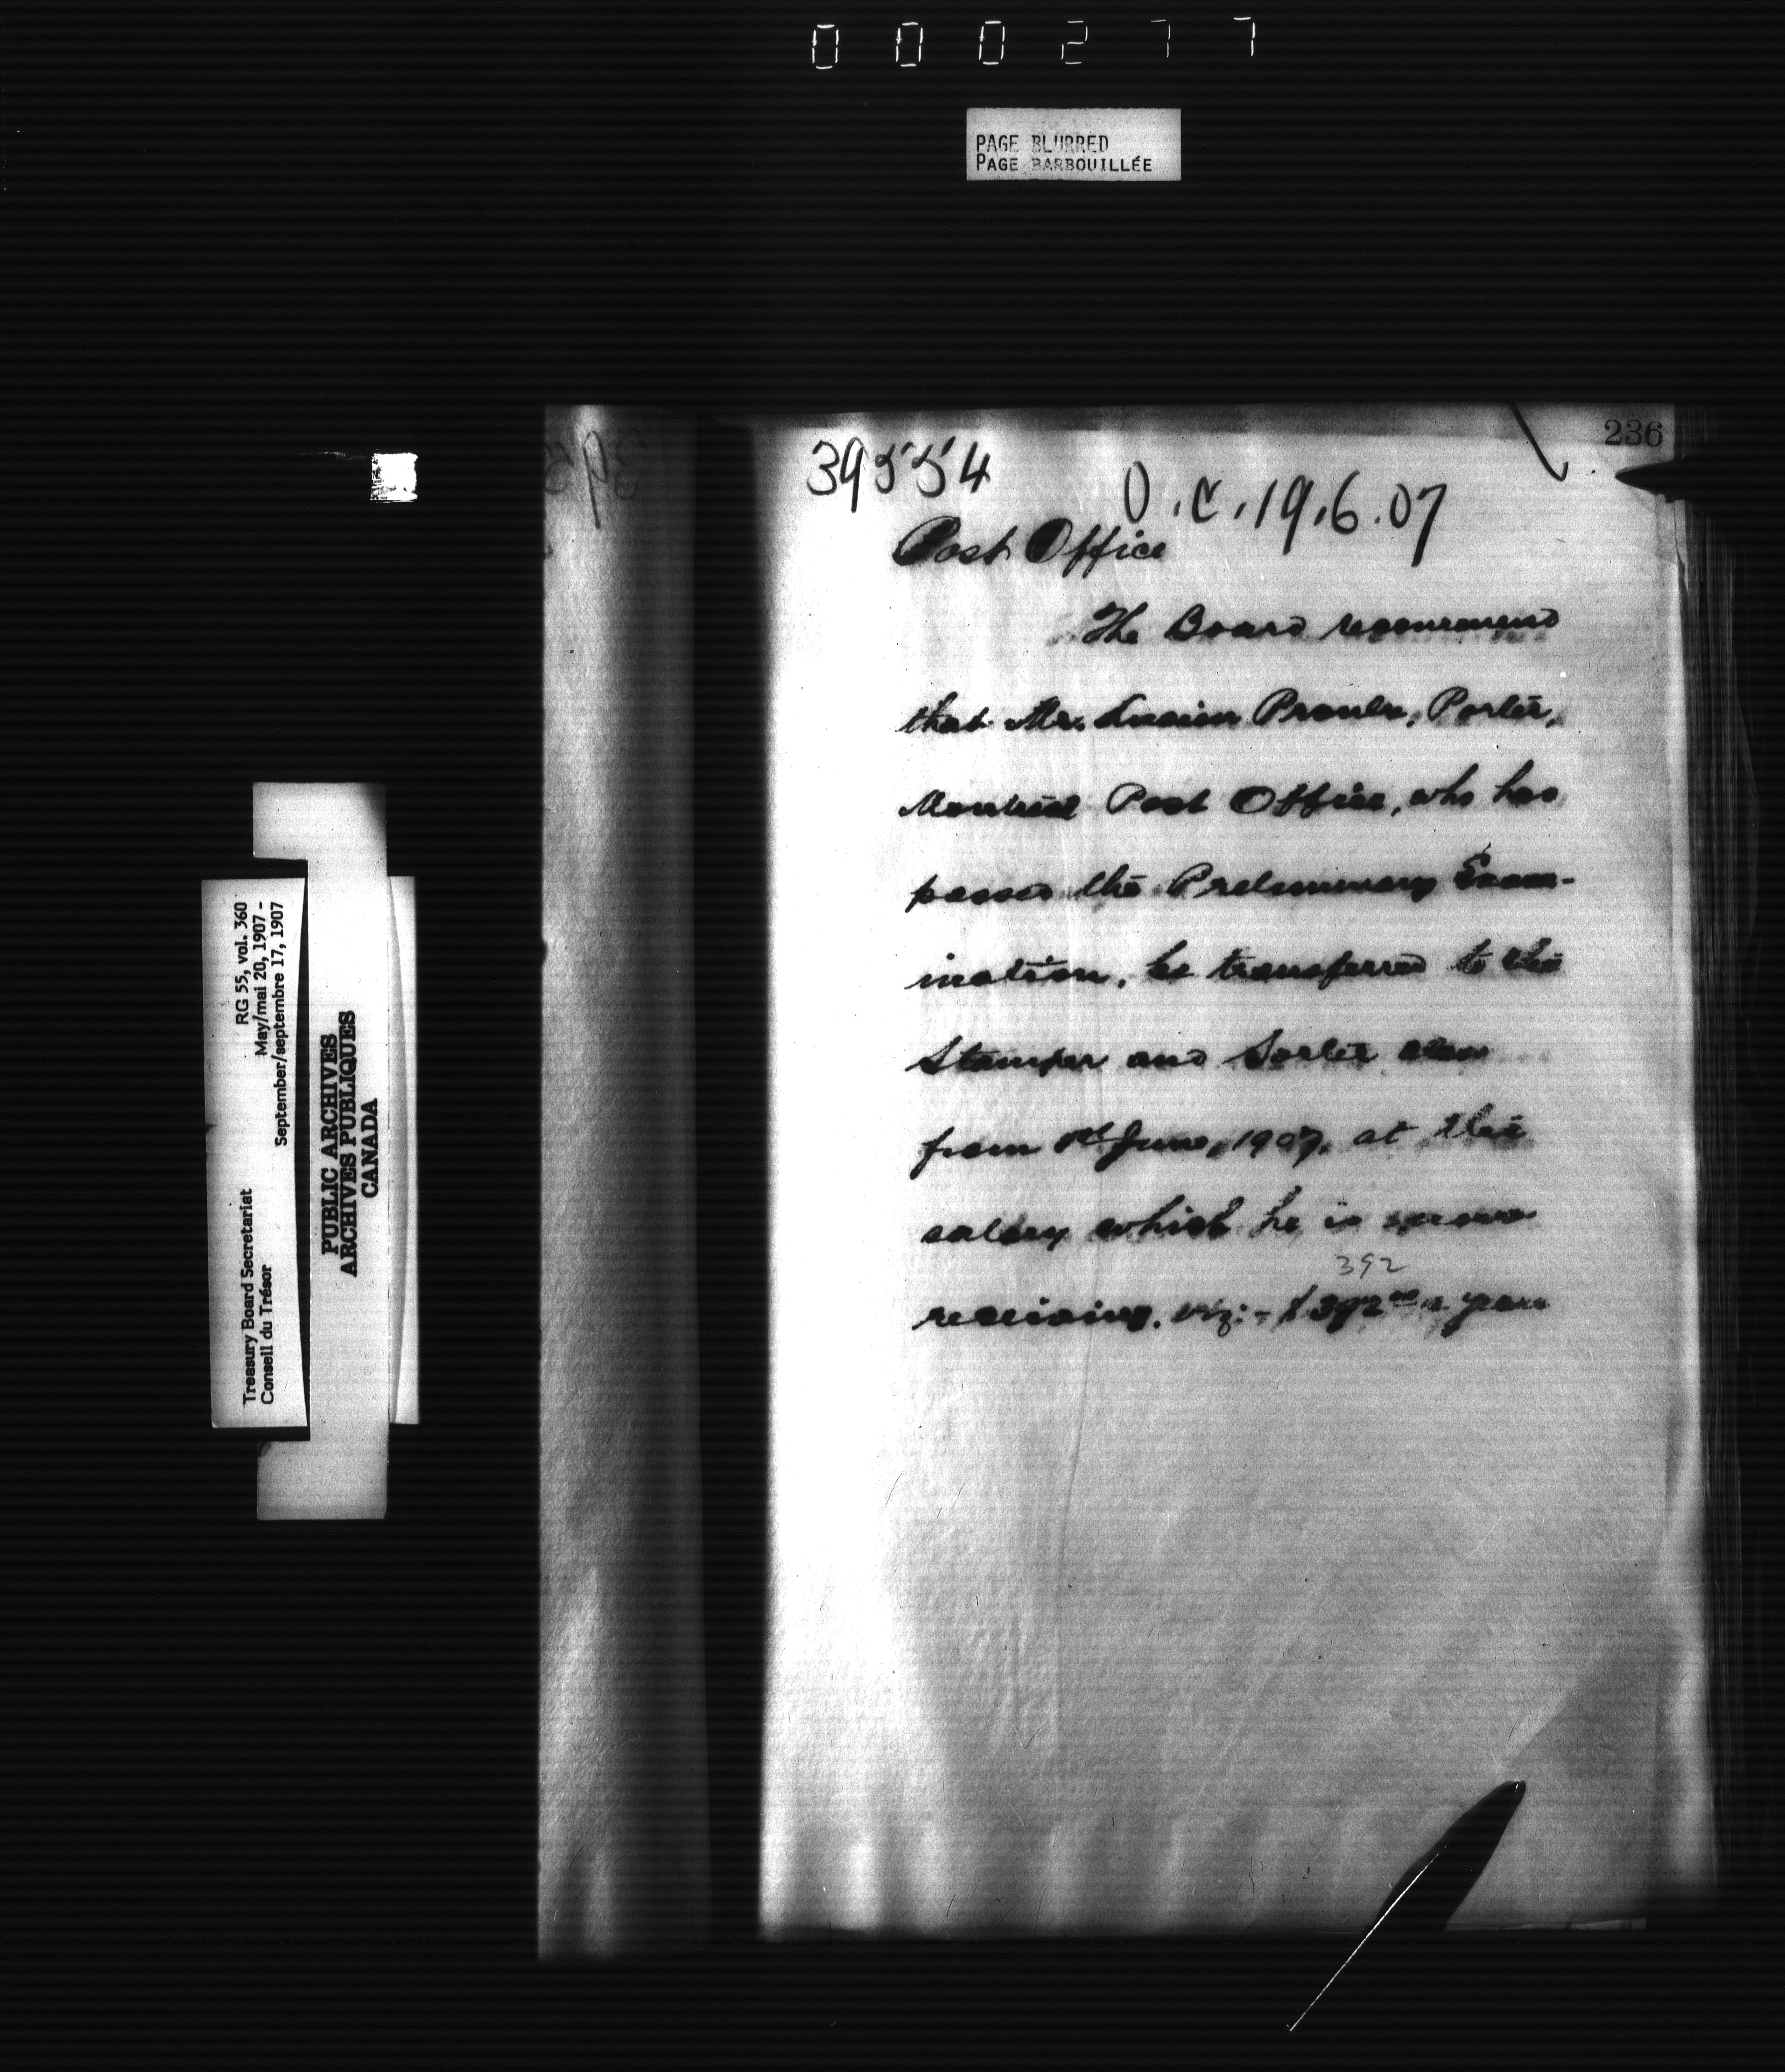 000277
PAGE BLURRED
PAGE BARBOUILLÉE
236
39554
O.C. 19.6.07
Post Office
The Board recommend
that Mr. Lucien Proulx, Porter,
Montreal Post Office, who has
passed the Preliminary Exam-
ination, be transferred to the
Stamper and Sorter class
from 1st June, 1907, at the
salary which he is
392
receiving, viz:- $392 00 a year
RG 55, vol. 360
May/mai 20, 1907 -
September/septembre 17, 1907
Treasury Board Secretariat
Conseil du Trésor
PUBLIC ARCHIVES
ARCHIVES PUBLIQUES
CANADA